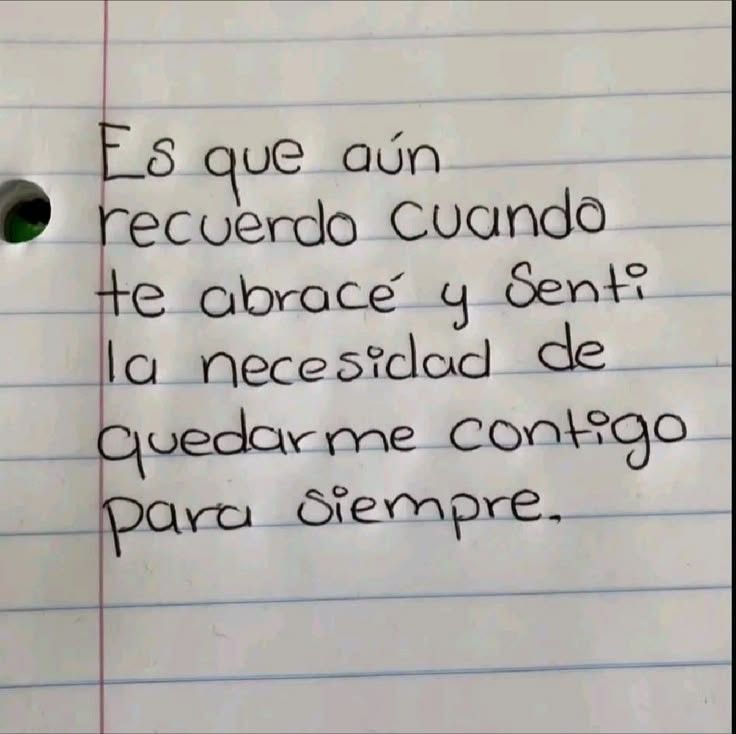 Es que aún
recuerdo cuando
te abracé y Senti
la necesidad de
quedarme contigo
para siempre.